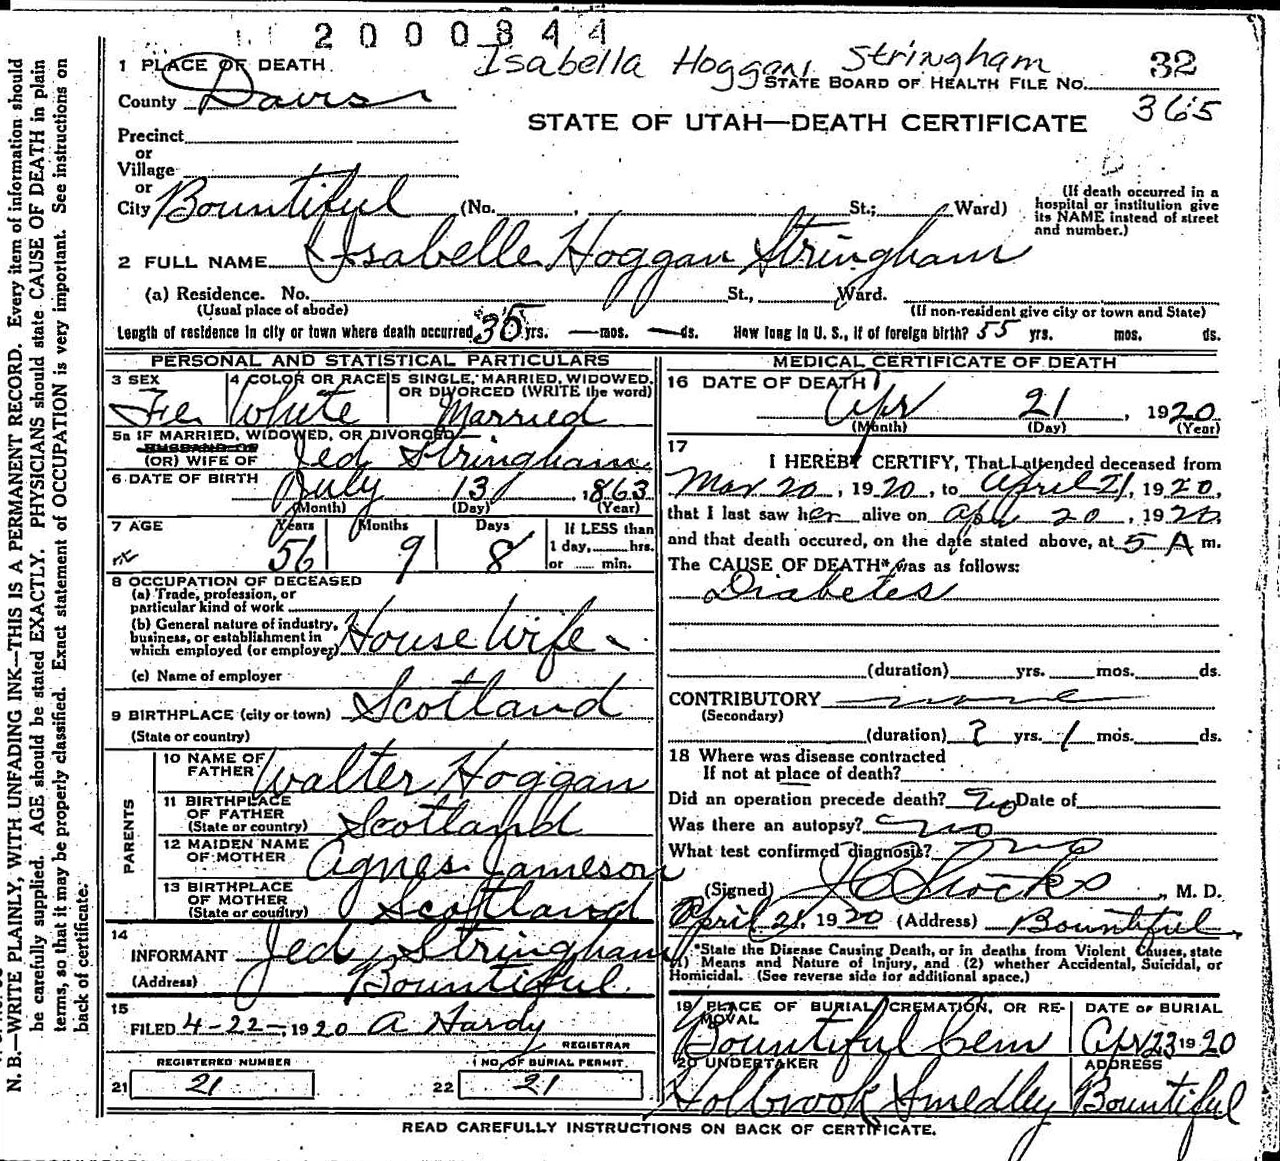 2000844
Isabella Hoggan Stringham 32
1 PLACE OF DEATH STATE BOARD OF HEALTH FILE NO.
County Davis 365
STATE OF UTAH—DEATH CERTIFICATE
Precinct
or
Village
or
City Bountiful (No. , St.; Ward) (If death occurred in a hospital or institution give its NAME instead of street and number.)
2 FULL NAME Isabelle Hoggan Stringham
(a) Residence. No. St., Ward.
(Usual place of abode) (If non-resident give city or town and State)
Length of residence in city or town where death occurred 35 yrs. — mos. — ds. How long in U. S., if of foreign birth? 55 yrs. mos. ds.
PERSONAL AND STATISTICAL PARTICULARS
3 SEX 4 COLOR OR RACE 5 SINGLE, MARRIED, WIDOWED,
OR DIVORCED (WRITE the word)
Fe. White Married
5a IF MARRIED, WIDOWED, OR DIVORCED—
HUSBAND OF
(OR) WIFE OF Jed Stringham
6 DATE OF BIRTH July 13, 1863
(Month) (Day) (Year)
7 AGE Years Months Days If LESS than
56 9 8 1 day, hrs.
or min.
8 OCCUPATION OF DECEASED
(a) Trade, profession, or
particular kind of work
(b) General nature of industry,
business, or establishment in
which employed (or employer) House Wife
(c) Name of employer
9 BIRTHPLACE (city or town) Scotland
(State or country)
PARENTS
10 NAME OF
FATHER Walter Hoggan
11 BIRTHPLACE
OF FATHER
(State or country) Scotland
12 MAIDEN NAME
OF MOTHER Agnes Jameson
13 BIRTHPLACE
OF MOTHER
(State or country) Scotland
14
INFORMANT Jed Stringham
(Address) Bountiful.
15
FILED 4-22-, 1920 A Hardy
REGISTRAR
REGISTERED NUMBER NO. OF BURIAL PERMIT
21 21 22 21
MEDICAL CERTIFICATE OF DEATH
16 DATE OF DEATH
Apr 21, 1920
(Month) (Day) (Year)
17
I HEREBY CERTIFY, That I attended deceased from
Mar 20, 1920, to April 21, 1920,
that I last saw her alive on Apr 20, 1920
and that death occured, on the date stated above, at 5 A m.
The CAUSE OF DEATH* was as follows:
Diabetes
(duration) yrs. mos. ds.
CONTRIBUTORY none
(Secondary)
(duration) 2 yrs. 1 mos. ds.
18 Where was disease contracted
If not at place of death?
Did an operation precede death? No Date of
Was there an autopsy? no
What test confirmed diagnosis?
(Signed) Stocks, M. D.
April 21, 1920 (Address) Bountiful
*State the Disease Causing Death, or in deaths from Violent Causes, state
(1) Means and Nature of Injury, and (2) whether Accidental, Suicidal, or
Homicidal. (See reverse side for additional space.)
19 PLACE OF BURIAL, CREMATION, OR RE- DATE OF BURIAL
MOVAL
Bountiful Cem Apr 23 1920
20 UNDERTAKER ADDRESS
Holbrook Smedley Bountiful
READ CAREFULLY INSTRUCTIONS ON BACK OF CERTIFICATE.
N. B.—WRITE PLAINLY, WITH UNFADING INK—THIS IS A PERMANENT RECORD. Every item of information should
be carefully supplied. AGE should be stated EXACTLY. PHYSICIANS should state CAUSE OF DEATH in plain
terms, so that it may be properly classified. Exact statement of OCCUPATION is very important. See instructions on
back of certificate.